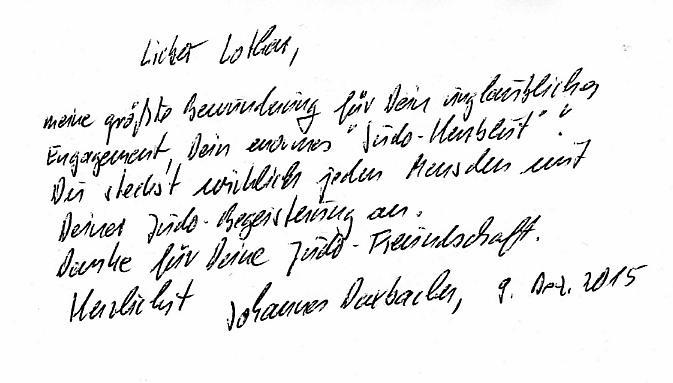 Lieber Lothar,
meine größte Bewunderung für Dein unglaubliches
Engagement, Dein enormes "Judo-Herzblut"!
Du steckst wirklich jeden Menschen mit
Deiner Judo-Begeisterung an.
Danke für Deine Judo-Freundschaft.
Herzlichst Johannes Daxbacher, 9. Dez. 2015